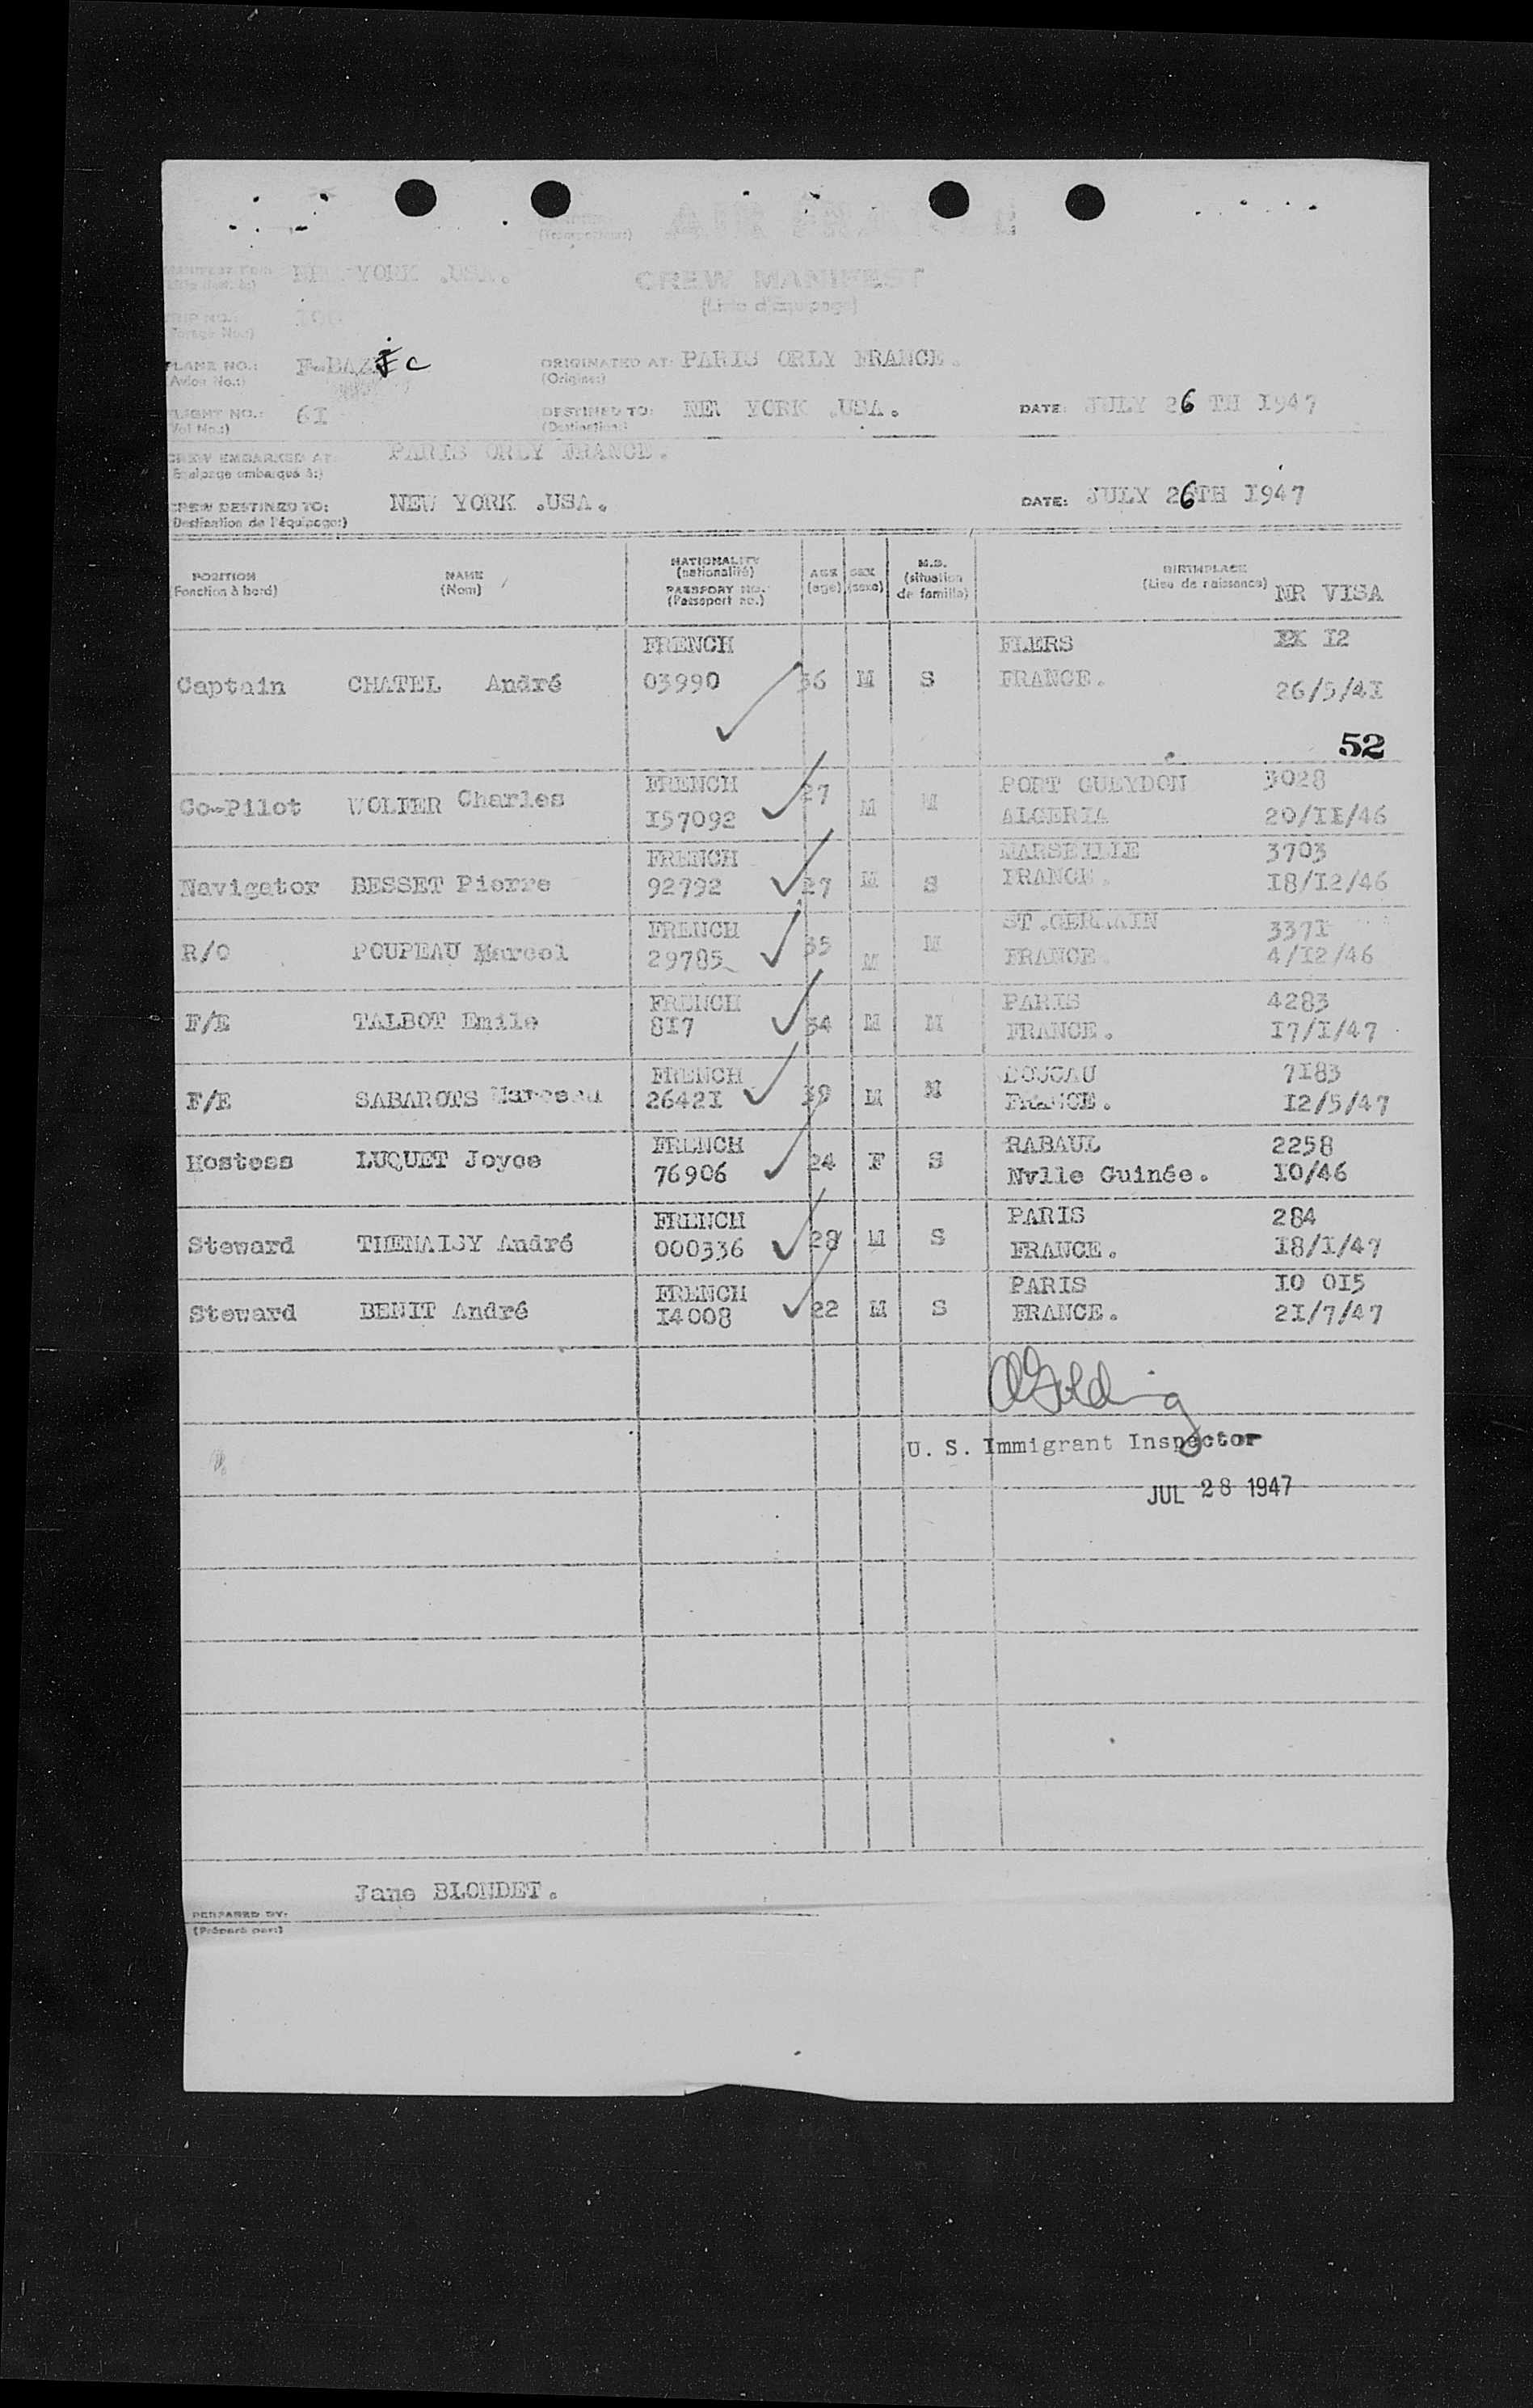 AIR FRANCE
MANIFEST FOR: NEW YORK .USA.
CREW MANIFEST
(Liste d'Equipage)
TRIP NO.:
(Voyage No.:)
PLANE NO.: F-BAZ C
ORIGINATED AT: PARIS ORLY FRANCE.
(Avion No.:)
(Origine:)
FLIGHT NO.: 6I
DESTINED TO: NEW YORK .USA.
DATE: JULY 26 TH I947
(Vol No.:)
(Destination:)
CREW EMBARKED AT: PARIS ORLY FRANCE.
(Equipage embarqué à:)
CREW DESTINED TO: NEW YORK .USA.
DATE: JULY 26TH I947
(Destination de l'équipage:)
POSITION
(Fonction à bord)
NAME
(Nom)
NATIONALITY
(nationalité)
PASSPORT NO.
(Passeport no.)
AGE
(age)
SEX
(sexe)
M.S.
(situation
de famille)
BIRTHPLACE
(Lieu de naissance)
NR VISA
FRENCH FLERS I2
Captain CHATEL André 03990 36 M S FRANCE. 26/5/4I
52
FRENCH PORT GUEYDON 3028
Co-Pilot WOLFER Charles I57092 27 M M ALGERIA 20/II/46
FRENCH MARSEILLE 3703
Navigator BESSET Pierre 92792 27 M S FRANCE. I8/I2/46
FRENCH ST.GERMAIN 337I
R/O POUPEAU Marcel 29785 35 M M FRANCE. 4/I2/46
FRENCH PARIS 4283
F/E TALBOT Emile 8I7 34 M M FRANCE. I7/I/47
FRENCH BOUCAU 7I83
F/E SABAROTS Marceau 2642I 39 M M FRANCE. I2/5/47
FRENCH RABAUL 2258
Hostess LUQUET Joyce 76906 24 F S Nvlle Guinée. IO/46
FRENCH PARIS 284
Steward THENAISY André 000336 28 M S FRANCE. I8/I/47
FRENCH PARIS IO OI5
Steward BENIT André I4008 22 M S FRANCE. 2I/7/47
Golding
U. S. Immigrant Inspector
JUL 28 1947
Jane BLONDET.
PREPARED BY:
(Préparé par:)